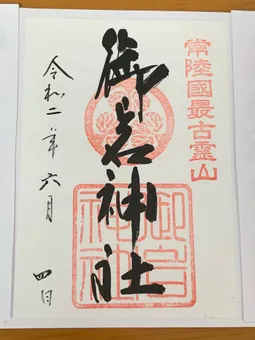 常陸國最古靈山
御岩神社
御岩
神社
令和二年六月四日